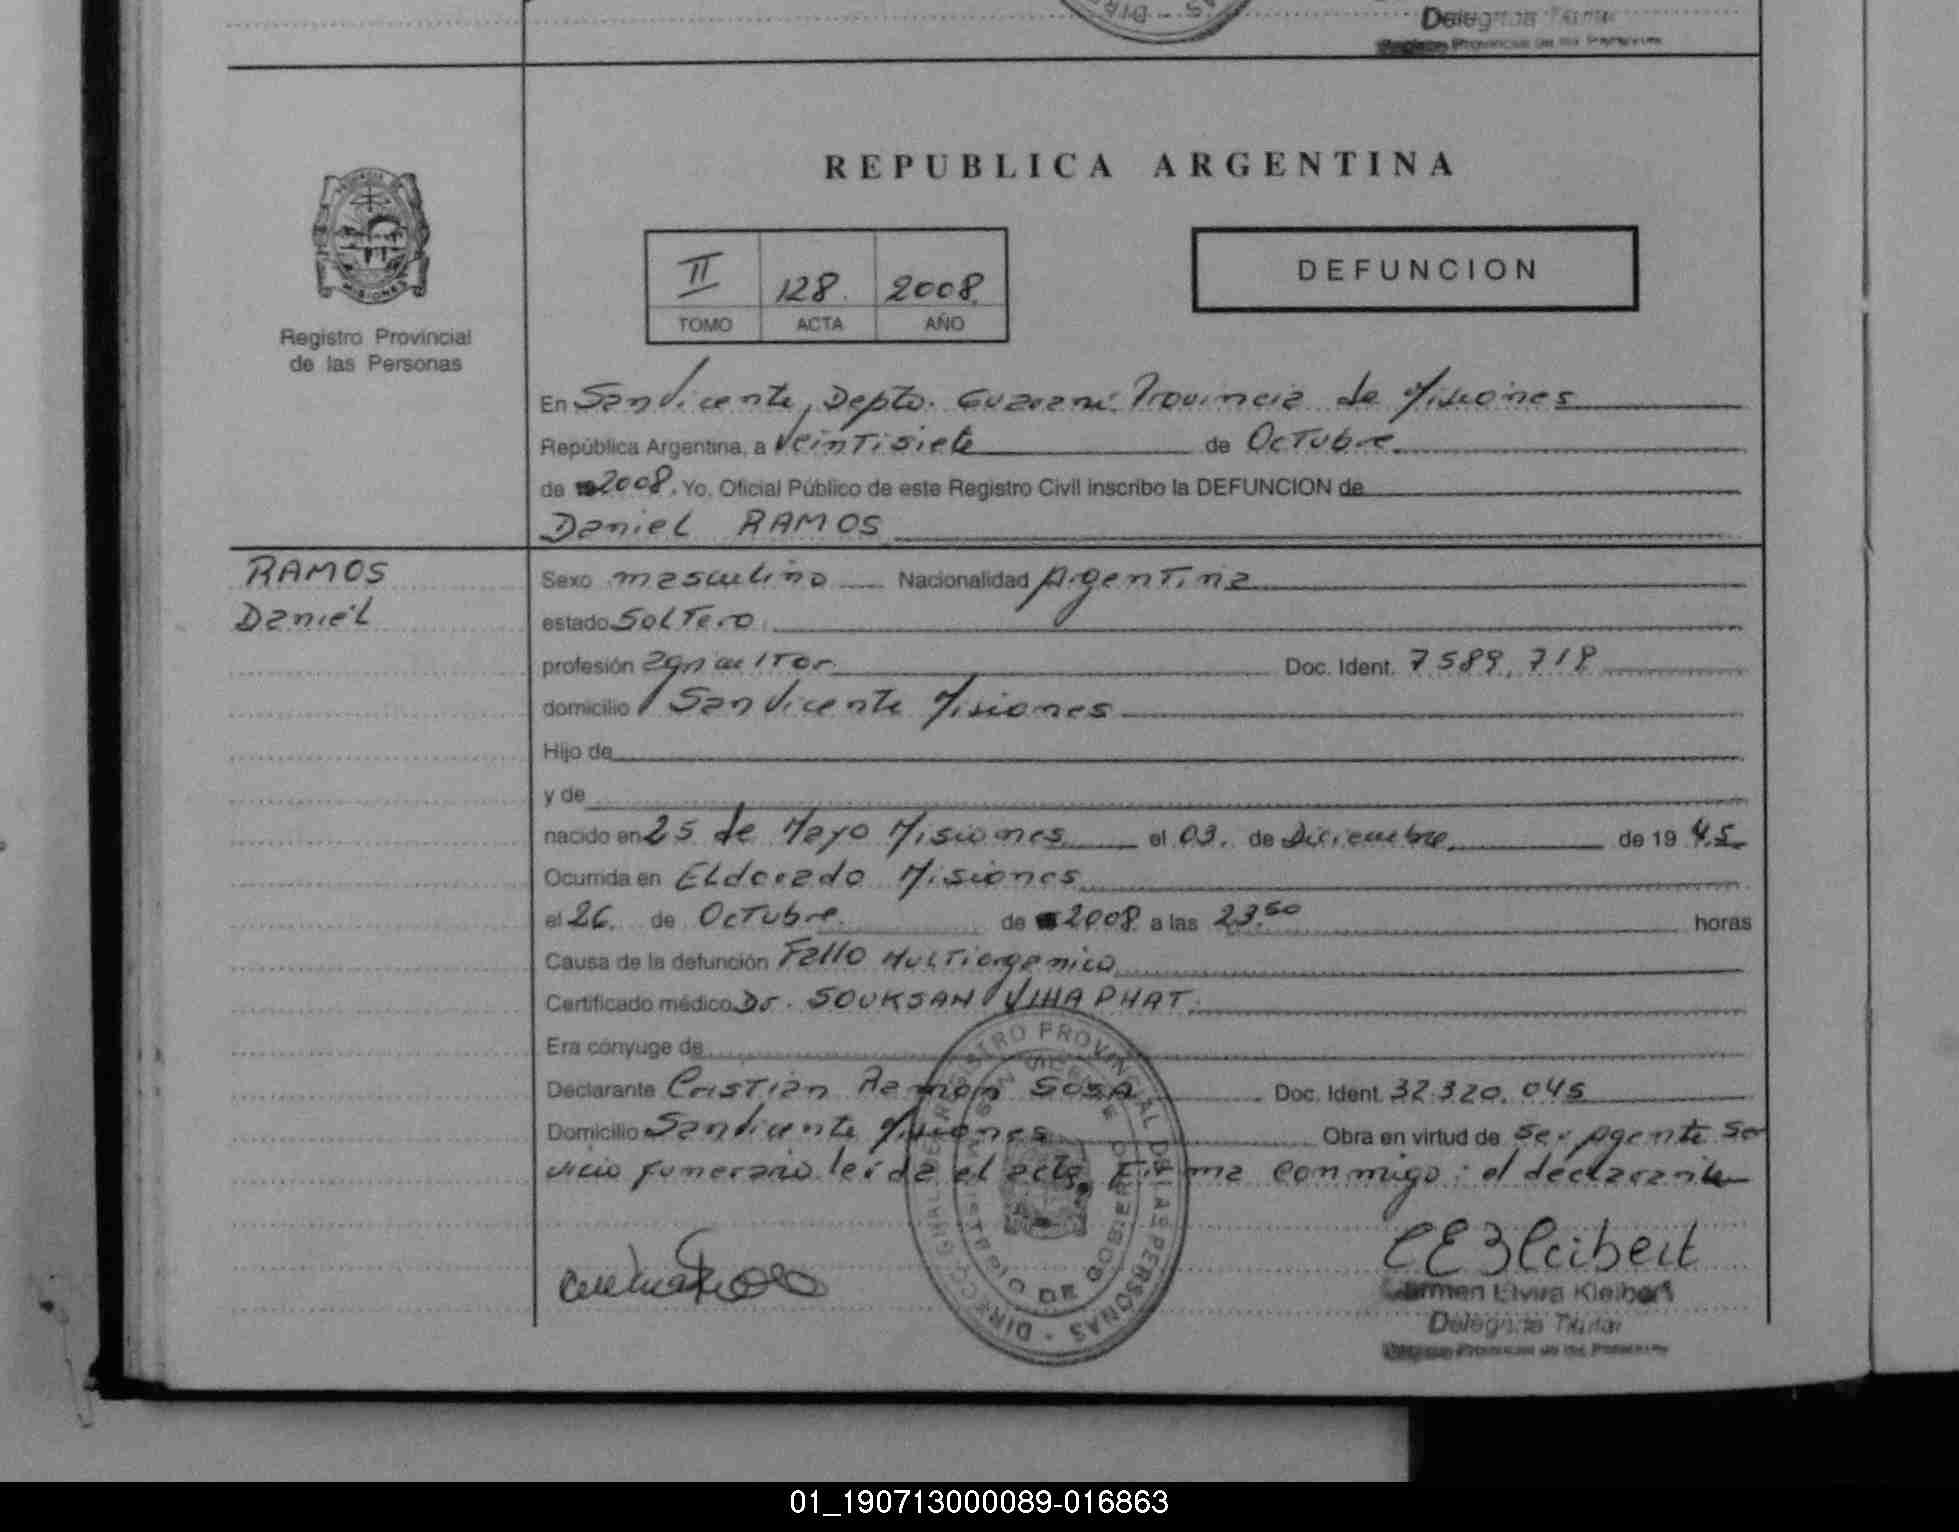 Delegada Titular
Registro Provincial de las Personas
REPUBLICA ARGENTINA
PROVINCIA
MISIONES
Registro Provincial
de las Personas
II 128. 2008.
TOMO ACTA AÑO
DEFUNCION
En San Vicente, Depto. Guaraní. Provincia de Misiones
República Argentina, a Veintisiete de Octubre
de 2008. Yo, Oficial Público de este Registro Civil inscribo la DEFUNCION de
Daniel RAMOS
RAMOS
Daniel
Sexo masculino Nacionalidad Argentina
estado Soltero
profesión agricultor Doc. Ident. 7589.718
domicilio San Vicente Misiones
Hijo de
y de
nacido en 25 de Mayo Misiones el 03. de Diciembre de 19 45
Ocurrida en Eldorado Misiones
el 26. de Octubre. de 2008. a las 23.50 horas
Causa de la defunción Fallo Multiorganico
Certificado médico Dr. SOUKSAN VIHAPHAT.
Era cónyuge de
Declarante Cristian Ramon SOSA Doc. Ident. 32.320.045
Domicilio San Vicente Misiones Obra en virtud de ser Agente Ser
vicio funerario leída el acta, Firma conmigo: el declarante
DIRECC. GRAL. DE REGISTRO PROVINCIAL DE LAS PERSONAS
SAN VICENTE
MINISTERIO DE GOBIERNO
CEKleibert
Carmen Elvira Kleibert
Delegada Titular
Registro Provincial de las Personas
01_190713000089-016863